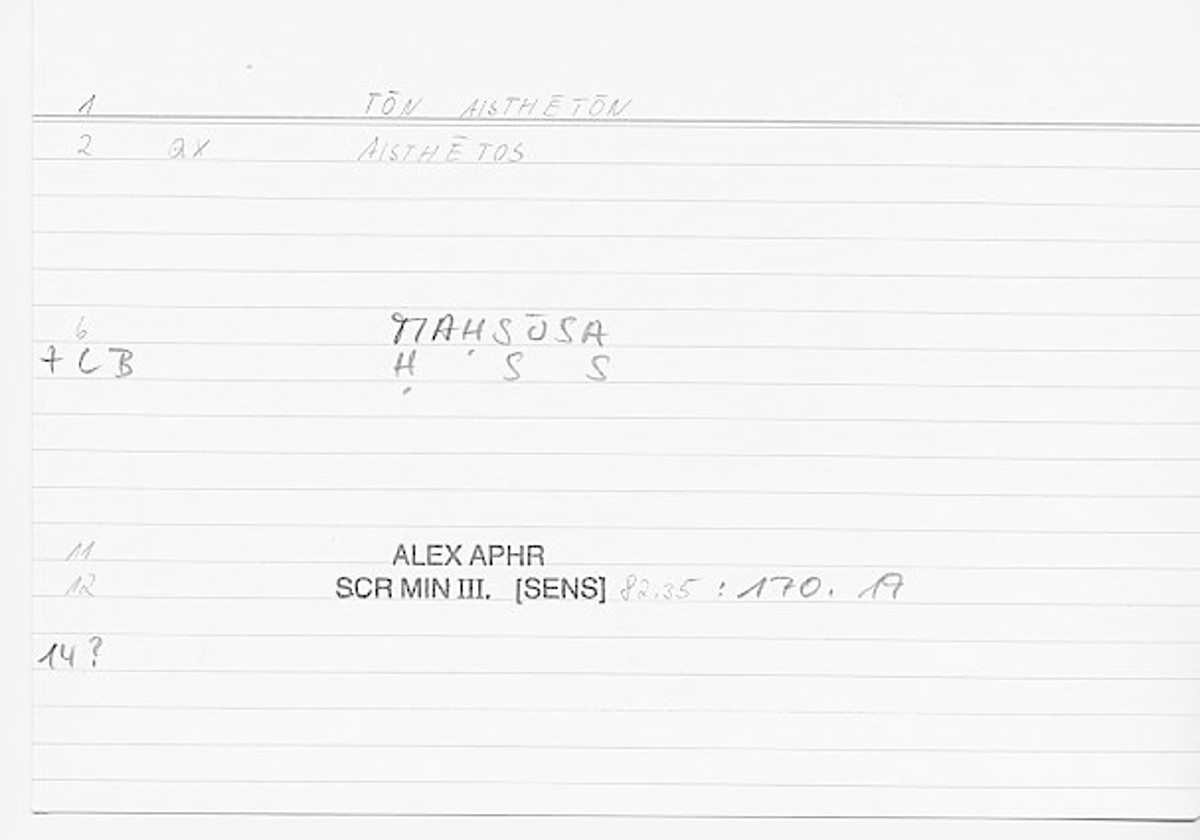 1 TŌN AISTHĒTŌN
2 QX AISTHĒTOS
6 MAḤSŪSA
7 C B Ḥ S S
11 ALEX APHR
12 SCR MIN III. [SENS] 82.35 : 170. 17
14 ?